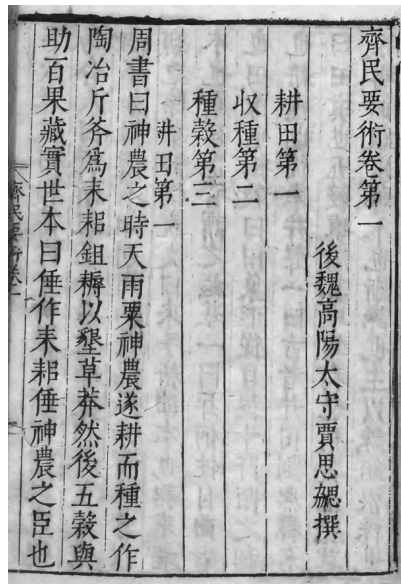 齊民要術卷第一
後魏高陽太守賈思勰撰
耕田第一
収種第二
種穀第三
耕田第一
周書曰神農之時天雨粟神農遂耕而種之作
陶冶斤斧爲耒耜鉏耨以墾草莽然後五穀與
助百果藏實世本曰倕作耒耜倕神農之臣也
齊民要術卷一